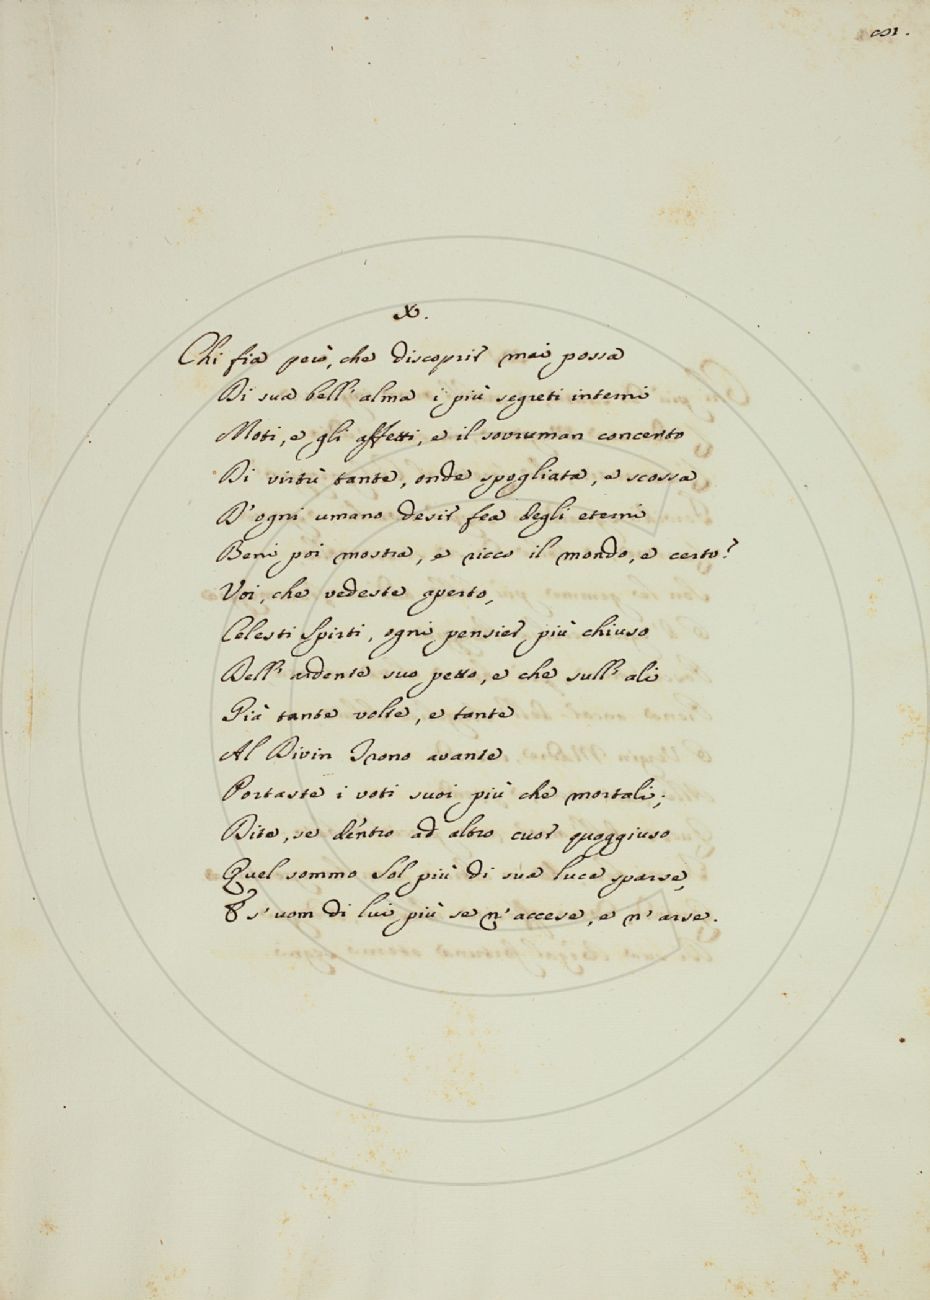 X.
Chi fia però, che discoprir mai possa
Di sua bell' alma i più segreti interni
Moti, e gli affetti, e il sovruman concento
Di virtù tante, onde spogliata, e scossa
D'ogni umano desir fea degli eterni
Beni poi mostra, e ricco il mondo, e certo?
Voi, che vedeste aperto,
Celesti Spirti, ogni pensier più chiuso
Dell' ardente suo petto, e che sull' ali
Già tante volte, e tante
Al Divin Trono avante
Portaste i voti suoi più che mortali;
Dite, se dentro ad altro cuor quaggiuso
Quel sommo Sol più di sua luce sparse,
E s' uom di lui più se n' accese, e n' arse.